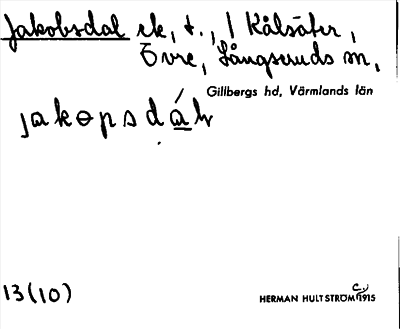 Jakobsdal rk, t., / Kålsäter,
Övre, Långseruds sn,
Gillbergs hd, Värmlands län
jakɵpsdáḷ
13(10)
HERMAN HULTSTRÖM 1915